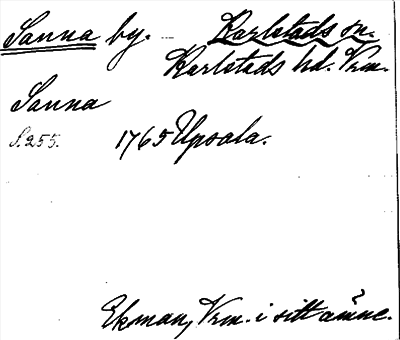 Sanna by. Karlstads sn.
Karlstads hd. Vrm.
Sanna
S. 255. 1765 Upsala.
Ekman, Vrm. i sitt ämne.